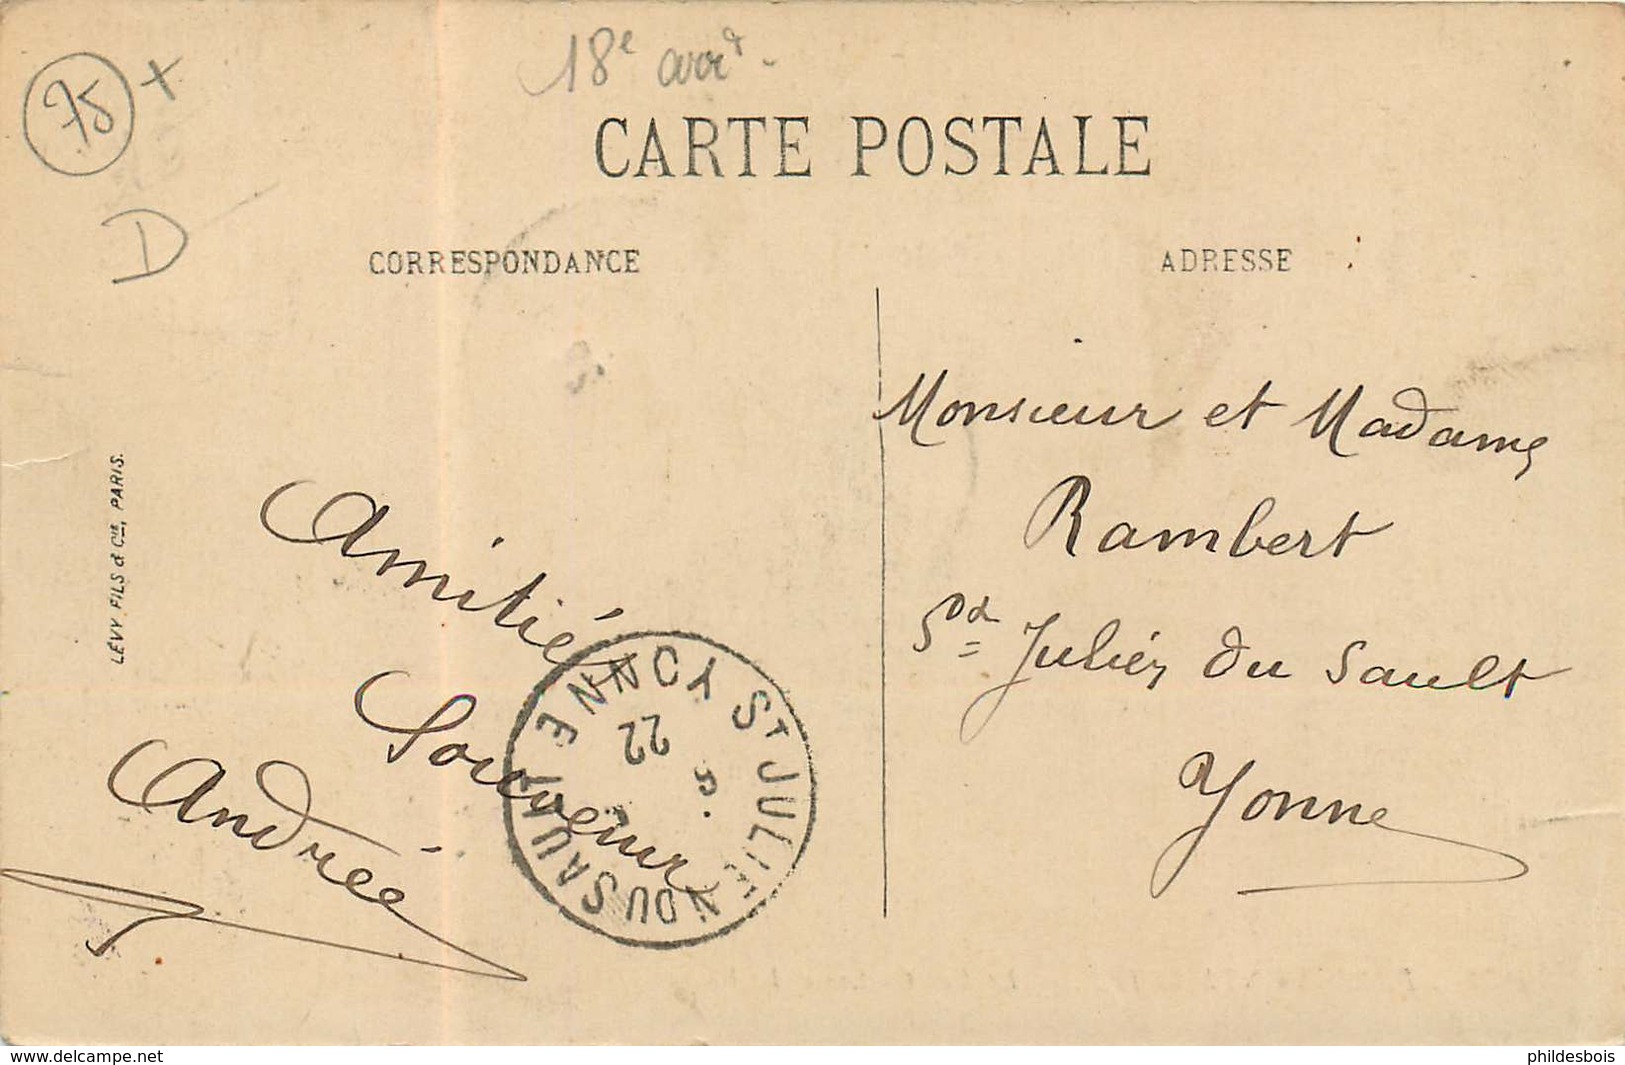 75 +
18e arrt.
D
CARTE POSTALE
CORRESPONDANCE
ADRESSE
LÉVY FILS & Cie, PARIS.
Amitiés
Souvenir
Andrée
Monsieur et Madame
Rambert
St Julien du Sault
Yonne
ST JULIEN DU SAULT YONNE
22
5
www.delcampe.net
phildesbois